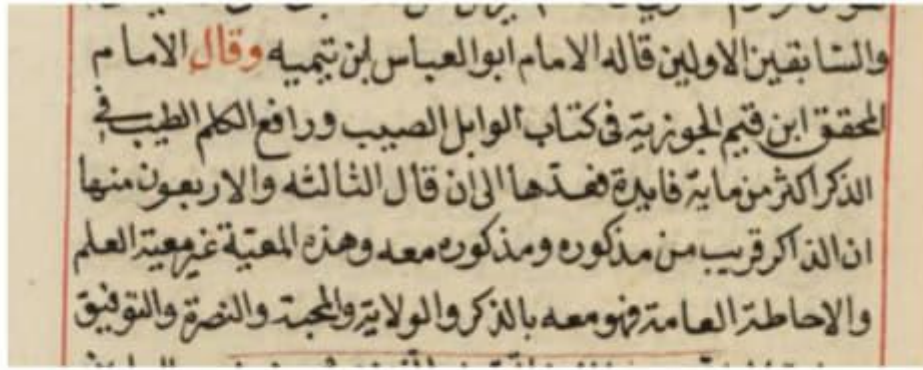 والسابقين الاولين قاله الامام ابو العباس ابن تيميه وقال الامام
المحقق ابن قيم الجوزية في كتاب الوابل الصيب ورافع الكلم الطيب في
الذكر اكثر من ماية فايدة فعدها الى ان قال الثالثه والاربعون منها
ان الذاكر قريب من مذكوره ومذكوره معه وهذه المعية غير معية العلم
والاحاطة العامة فهو معه بالذكر والولاية والمحبة والنصرة والتوفيق